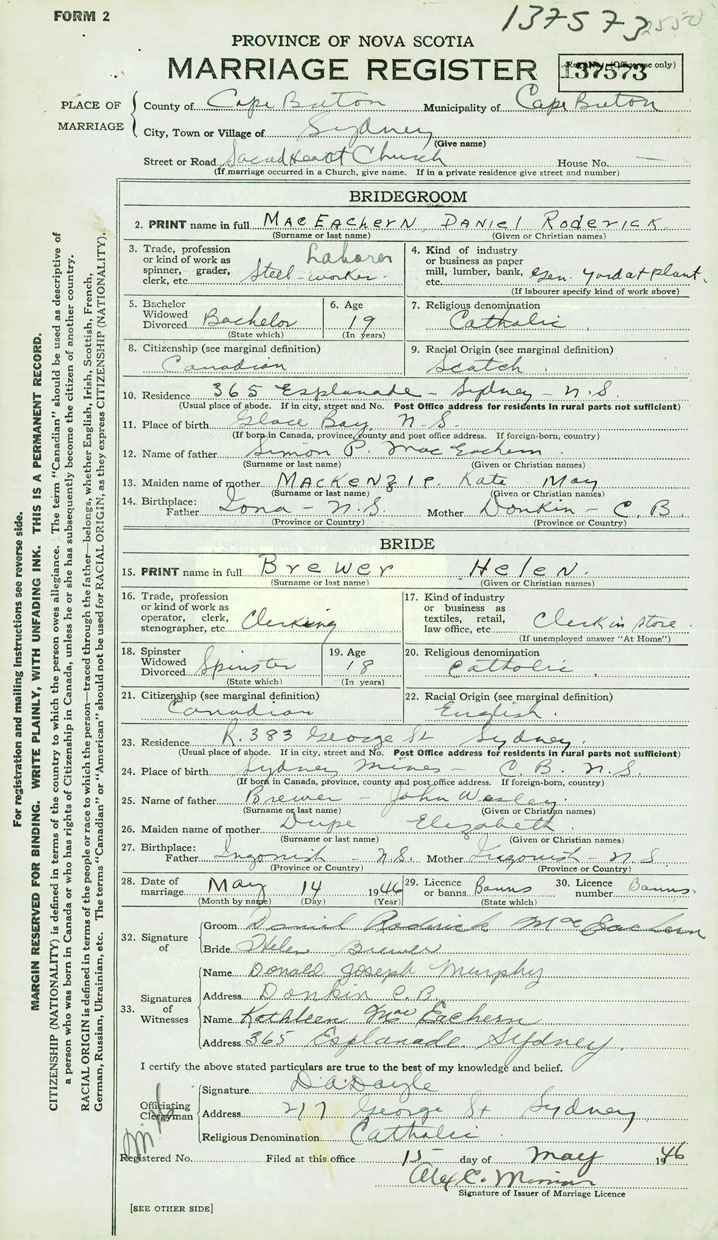 FORM 2
137573
PROVINCE OF NOVA SCOTIA
MARRIAGE REGISTER
137573
(Office use only)
PLACE OF MARRIAGE
County of Cape Breton Municipality of Cape Breton
City, Town or Village of Sydney
(Give name)
Street or Road Sacred Heart Church House No. —
(If marriage occurred in a Church, give name. If in a private residence give street and number)
BRIDEGROOM
2. PRINT name in full MacEachern, Daniel Roderick
(Surname or last name) (Given or Christian names)
3. Trade, profession or kind of work as spinner, grader, clerk, etc. Laborer Steel-worker.
4. Kind of industry or business as paper mill, lumber, bank, etc. Gen. yard at plant.
(If labourer specify kind of work above)
5. Bachelor Widowed Divorced Bachelor
(State which)
6. Age 19
(In years)
7. Religious denomination Catholic
8. Citizenship (see marginal definition) Canadian
9. Racial Origin (see marginal definition) Scotch
10. Residence 365 Esplanade - Sydney - N.S.
(Usual place of abode. If in city, street and No. Post Office address for residents in rural parts not sufficient)
11. Place of birth Glace Bay, N.S.
(If born in Canada, province, county and post office address. If foreign-born, country)
12. Name of father Simon P. MacEachern
(Surname or last name) (Given or Christian names)
13. Maiden name of mother MacKenzie, Kate May
(Surname or last name) (Given or Christian names)
14. Birthplace: Father Iona - N.S. Mother Donkin - C.B.
(Province or Country) (Province or Country)
BRIDE
15. PRINT name in full Brewer Helen.
(Surname or last name) (Given or Christian names)
16. Trade, profession or kind of work as operator, clerk, stenographer, etc. Clerking
17. Kind of industry or business as textiles, retail, law office, etc. Clerk in store.
(If unemployed answer "At Home")
18. Spinster Widowed Divorced Spinster
(State which)
19. Age 18
(In years)
20. Religious denomination Catholic
21. Citizenship (see marginal definition) Canadian
22. Racial Origin (see marginal definition) English.
23. Residence R. 383 George St Sydney
(Usual place of abode. If in city, street and No. Post Office address for residents in rural parts not sufficient)
24. Place of birth Sydney Mines - C.B. N.S.
(If born in Canada, province, county and post office address. If foreign-born, country)
25. Name of father Brewer - John Wesley.
(Surname or last name) (Given or Christian names)
26. Maiden name of mother Dupe Elizabeth
(Surname or last name) (Given or Christian names)
27. Birthplace: Father Ingonish - N.S. Mother Ingonish - N.S
(Province or Country) (Province or Country)
28. Date of marriage May 14 1946
(Month by name) (Day) (Year)
29. Licence or banns Banns
(State which)
30. Licence number Banns.
32. Signature of
Groom Daniel Roderick MacEachern
Bride Helen Brewer
33. Signatures of Witnesses
Name Donald Joseph Murphy
Address Donkin C.B.
Name Kathleen MacEachern
Address 365 Esplanade. Sydney.
I certify the above stated particulars are true to the best of my knowledge and belief.
Officiating Clergyman
Signature D.A. Doyle
Address 217 George St Sydney
Religious Denomination Catholic
Registered No. Filed at this office 15 day of May 1946
Signature of Issuer of Marriage Licence
[SEE OTHER SIDE]
For registration and mailing instructions see reverse side.
MARGIN RESERVED FOR BINDING. WRITE PLAINLY, WITH UNFADING INK. THIS IS A PERMANENT RECORD.
CITIZENSHIP (NATIONALITY) is defined in terms of the country to which the person owes allegiance. The term "Canadian" should be used as descriptive of
a person who was born in Canada or who has rights of Citizenship in Canada, unless he or she has subsequently become the citizen of another country.
RACIAL ORIGIN is defined in terms of the people or race to which the person—traced through the father—belongs, whether English, Irish, Scottish, French,
German, Russian, Ukrainian, etc. The terms "Canadian" or "American" should not be used for RACIAL ORIGIN, as they express CITIZENSHIP (NATIONALITY).